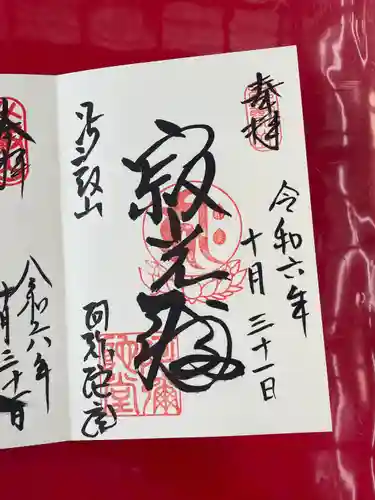 奉拝
令和六年
十月三十一日
寂光殿
比叡山
阿弥陀堂
阿彌
陀堂
奉拝
令和六年
十月三十一日